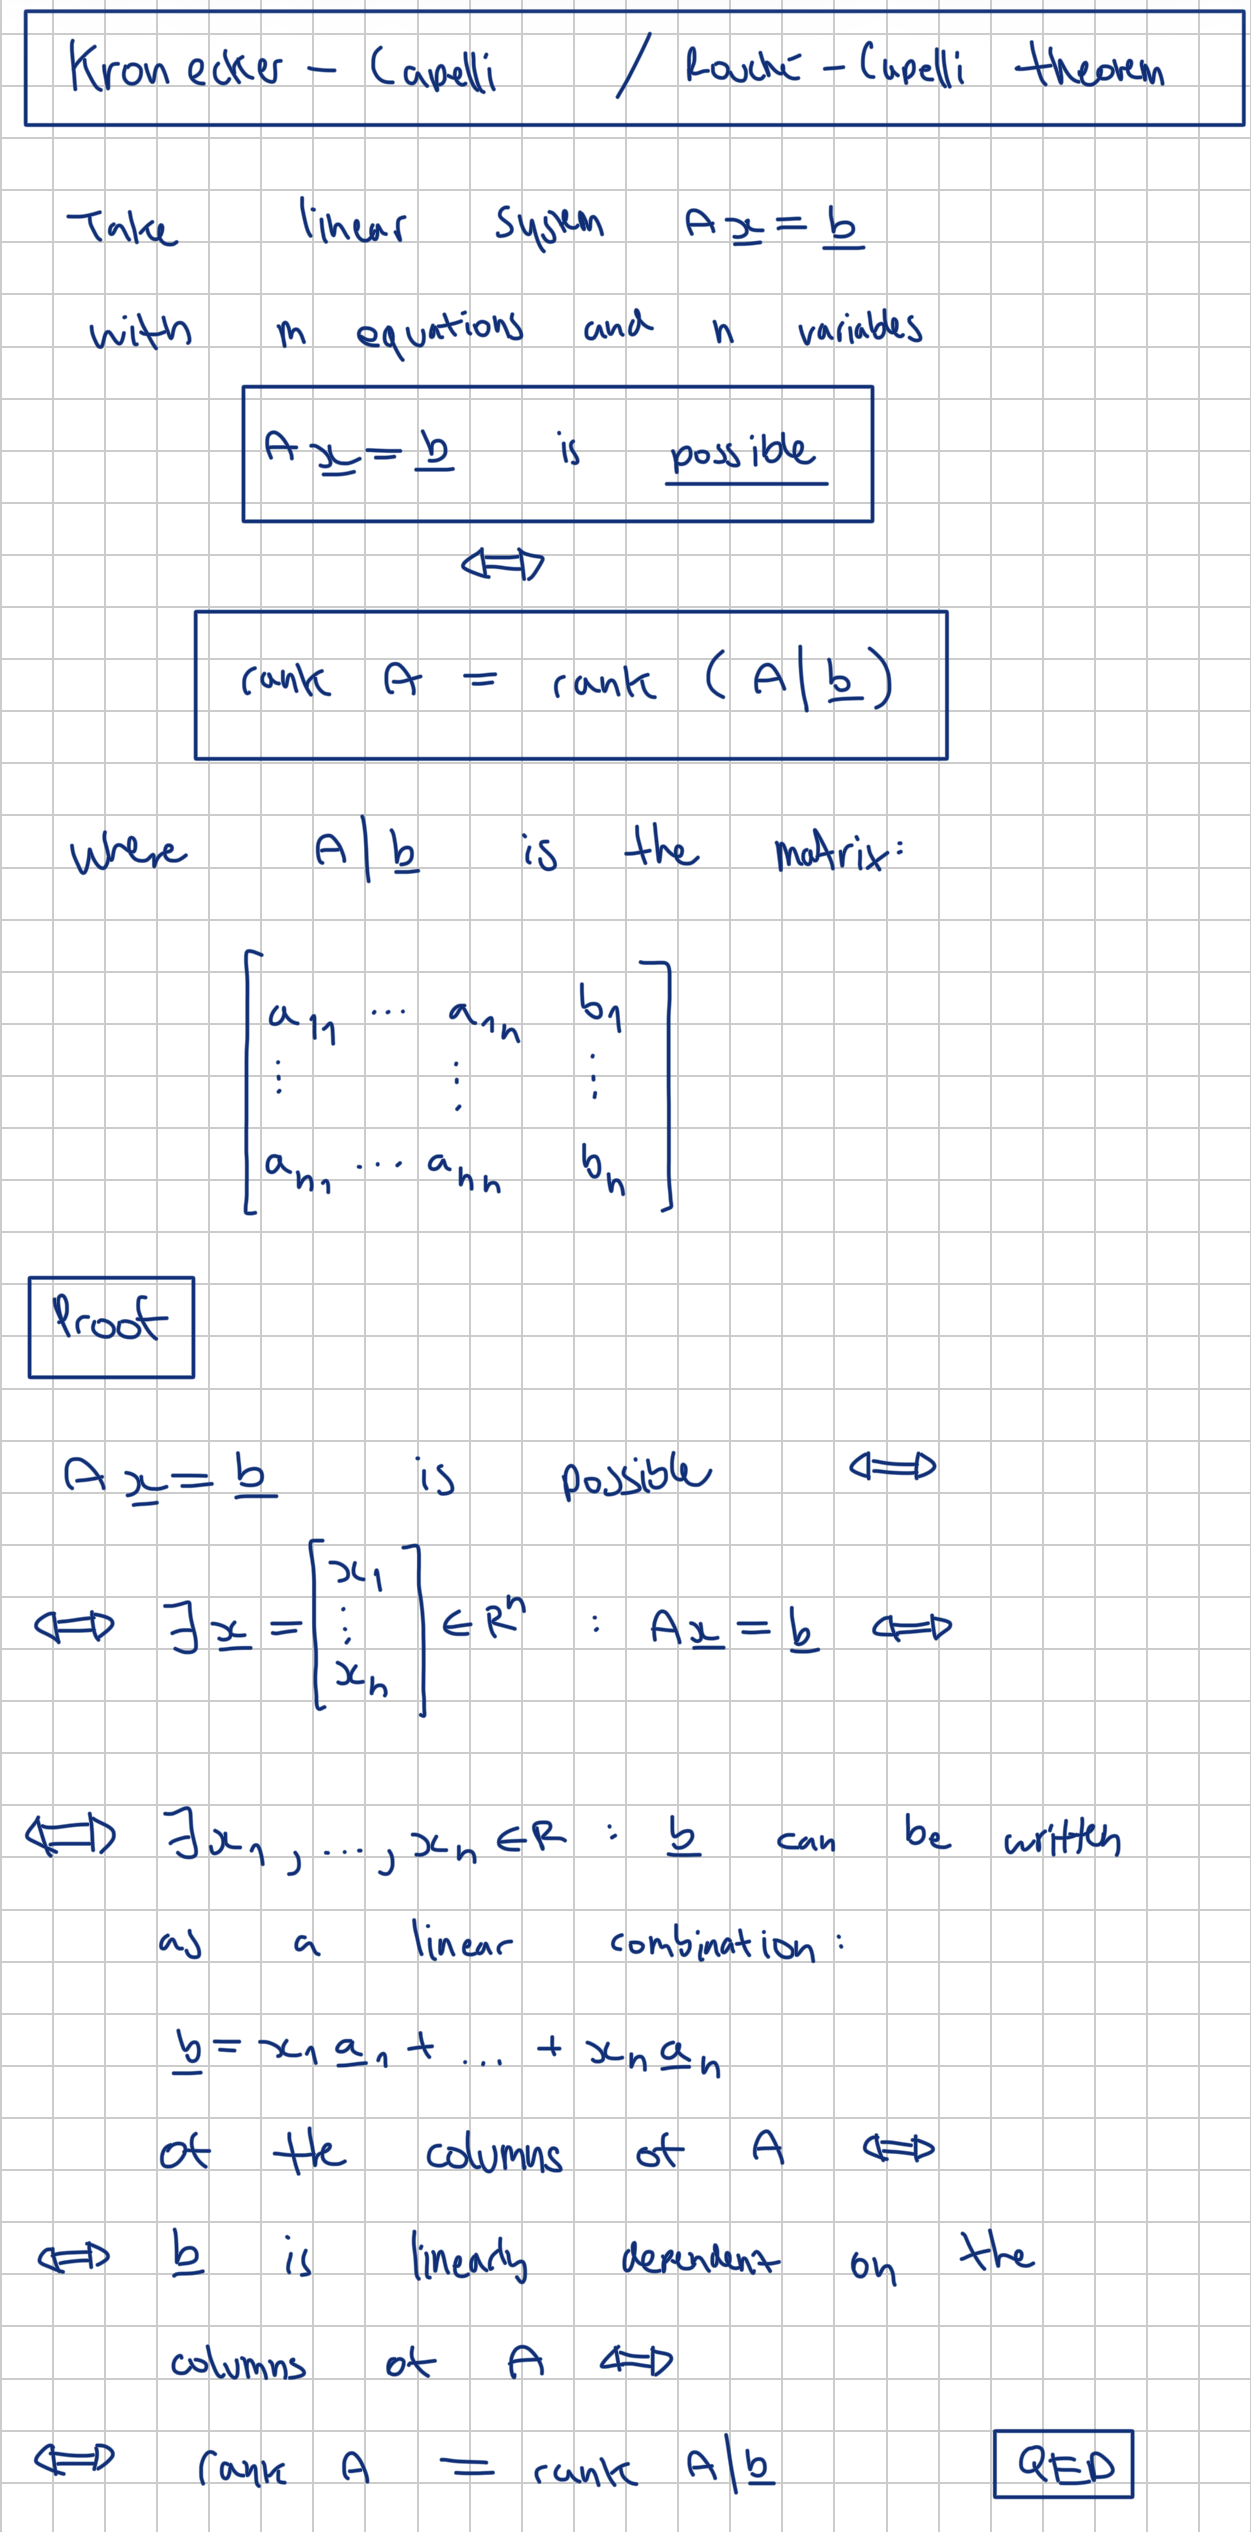 Kronecker - Capelli / Rouché - Capelli theorem
Take linear system Ax = b
with m equations and n variables
Ax = b is possible
⇔
rank A = rank (A|b)
where A|b is the matrix:
a11 ... a1n b1
⋮ ⋮ ⋮
an1 ... ann bn
Proof
Ax = b is possible ⇔
⇔ ∃x = [x1 ⋮ xn] ∈ R^n : Ax = b ⇔
⇔ ∃x1, ..., xn ∈ R : b can be written
as a linear combination:
b = x1 a1 + ... + xn an
of the columns of A ⇔
⇔ b is linearly dependent on the
columns of A ⇔
⇔ rank A = rank A|b QED